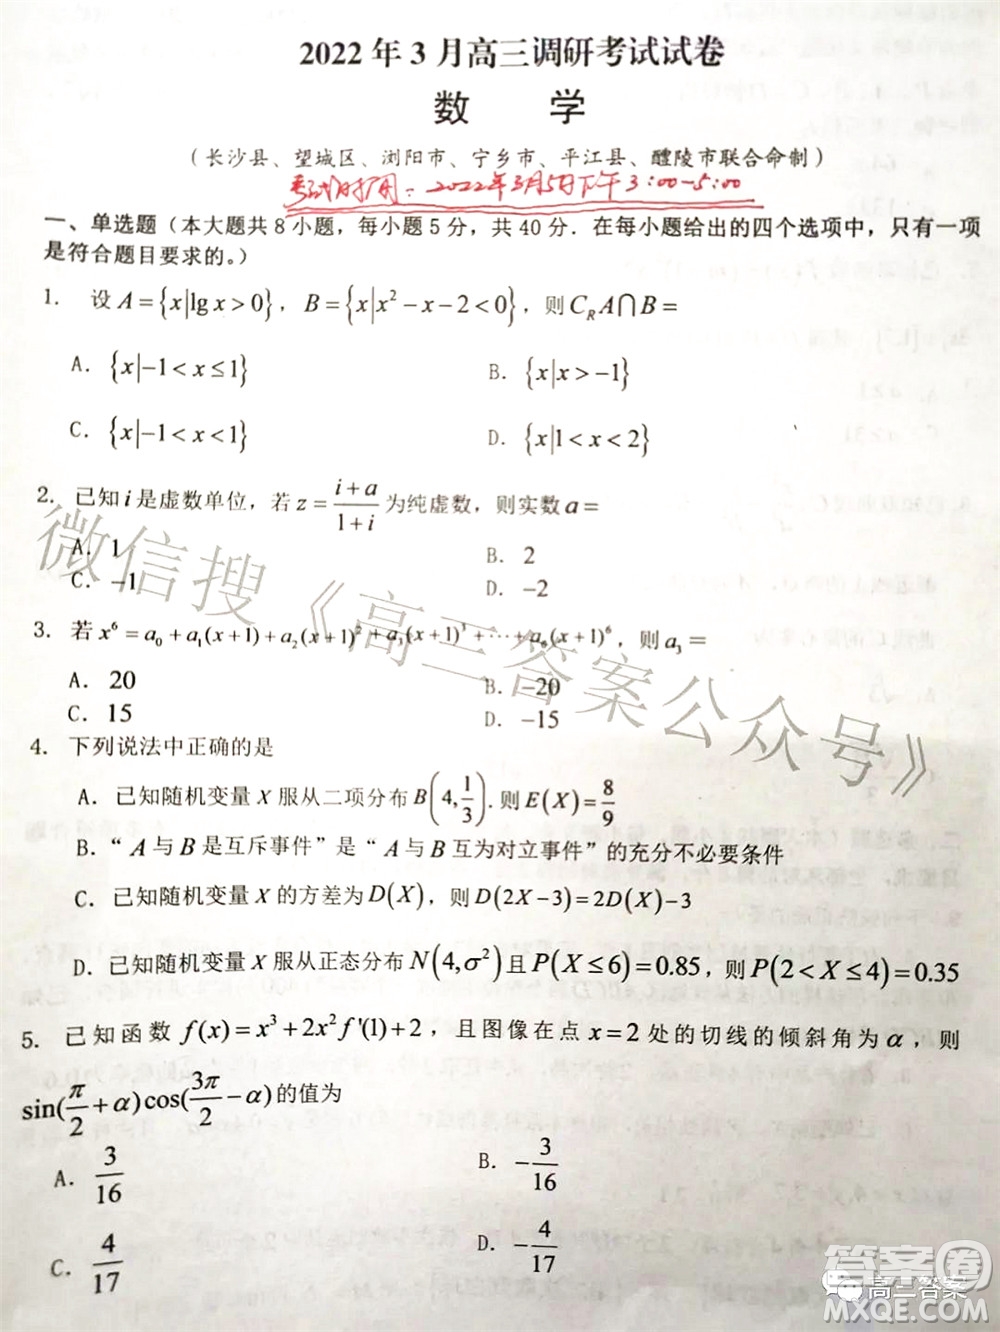 2022 年 3 月高三调研考试试卷
数 学
（长沙县、望城区、浏阳市、宁乡市、平江县、醴陵市联合命制）
考试时间：2022年3月5日下午3:00-5:00
一、单选题（本大题共 8 小题，每小题 5 分，共 40 分．在每小题给出的四个选项中，只有一项
是符合题目要求的。）
1. 设 A={x|lg x>0}，B={x|x²-x-2<0}，则 C_R A∩B=
A. {x|-1<x≤1} B. {x|x>-1}
C. {x|-1<x<1} D. {x|1<x<2}
2. 已知 i 是虚数单位，若 z=(i+a)/(1+i) 为纯虚数，则实数 a=
A. 1 B. 2
C. -1 D. -2
3. 若 x⁶=a₀+a₁(x+1)+a₂(x+1)²+a₃(x+1)³+⋯+a₆(x+1)⁶，则 a₃=
A. 20 B. -20
C. 15 D. -15
4. 下列说法中正确的是
A. 已知随机变量 X 服从二项分布 B(4,1/3).则 E(X)=8/9
B. “ A 与 B 是互斥事件”是“ A 与 B 互为对立事件”的充分不必要条件
C. 已知随机变量 X 的方差为 D(X)，则 D(2X-3)=2D(X)-3
D. 已知随机变量 X 服从正态分布 N(4,σ²) 且 P(X≤6)=0.85，则 P(2<X≤4)=0.35
5. 已知函数 f(x)=x³+2x²f'(1)+2，且图像在点 x=2 处的切线的倾斜角为 α，则
sin(π/2+α)cos(3π/2-α)的值为
A. 3/16 B. -3/16
C. 4/17 D. -4/17
微信搜《高三答案公众号》
答案圈
高三答案
MXQE.COM